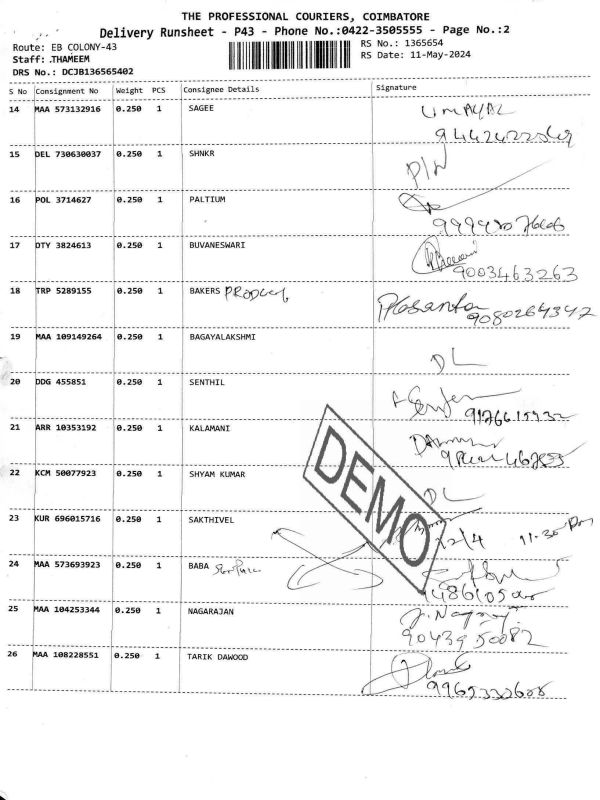 THE PROFESSIONAL COURIERS, COIMBATORE
Delivery Runsheet - P43 - Phone No.:0422-3505555 - Page No.:2
Route: EB COLONY-43
RS No.: 1365654
Staff: .THAMEEM
RS Date: 11-May-2024
DRS No.: DCJB136565402
S No Consignment No Weight PCS Consignee Details Signature
14 MAA 573132916 0.250 1 SAGEE UMAYAL
15 DEL 730630037 0.250 1 SHNKR
16 POL 3714627 0.250 1 PALTIUM
17 DTY 3824613 0.250 1 BUVANESWARI
9003463263
18 TRP 5289155 0.250 1 BAKERS PRODUCT
9080264342
19 MAA 109149264 0.250 1 BAGAYALAKSHMI
DL
20 DDG 455851 0.250 1 SENTHIL
21 ARR 10353192 0.250 1 KALAMANI
22 KCM 50077923 0.250 1 SHYAM KUMAR DL
DEMO
23 KUR 696015716 0.250 1 SAKTHIVEL
12/4 11-30
24 MAA 573693923 0.250 1 BABA
25 MAA 104253344 0.250 1 NAGARAJAN
9043950082
26 MAA 108228551 0.250 1 TARIK DAWOOD